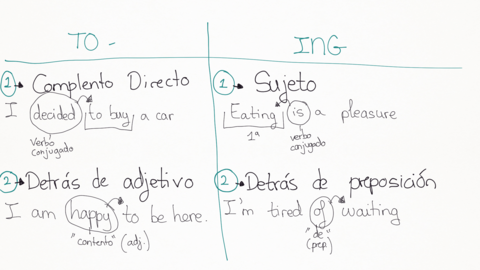 TO -
ING
1 Complento Directo
I decided to buy a car
verbo
conjugado
2 Detrás de adjetivo
I am happy to be here.
"contento" (adj.)
1 Sujeto
Eating is a pleasure
1ª
verbo
conjugado
2 Detrás de preposición
I'm tired of waiting
"de"
(prep)